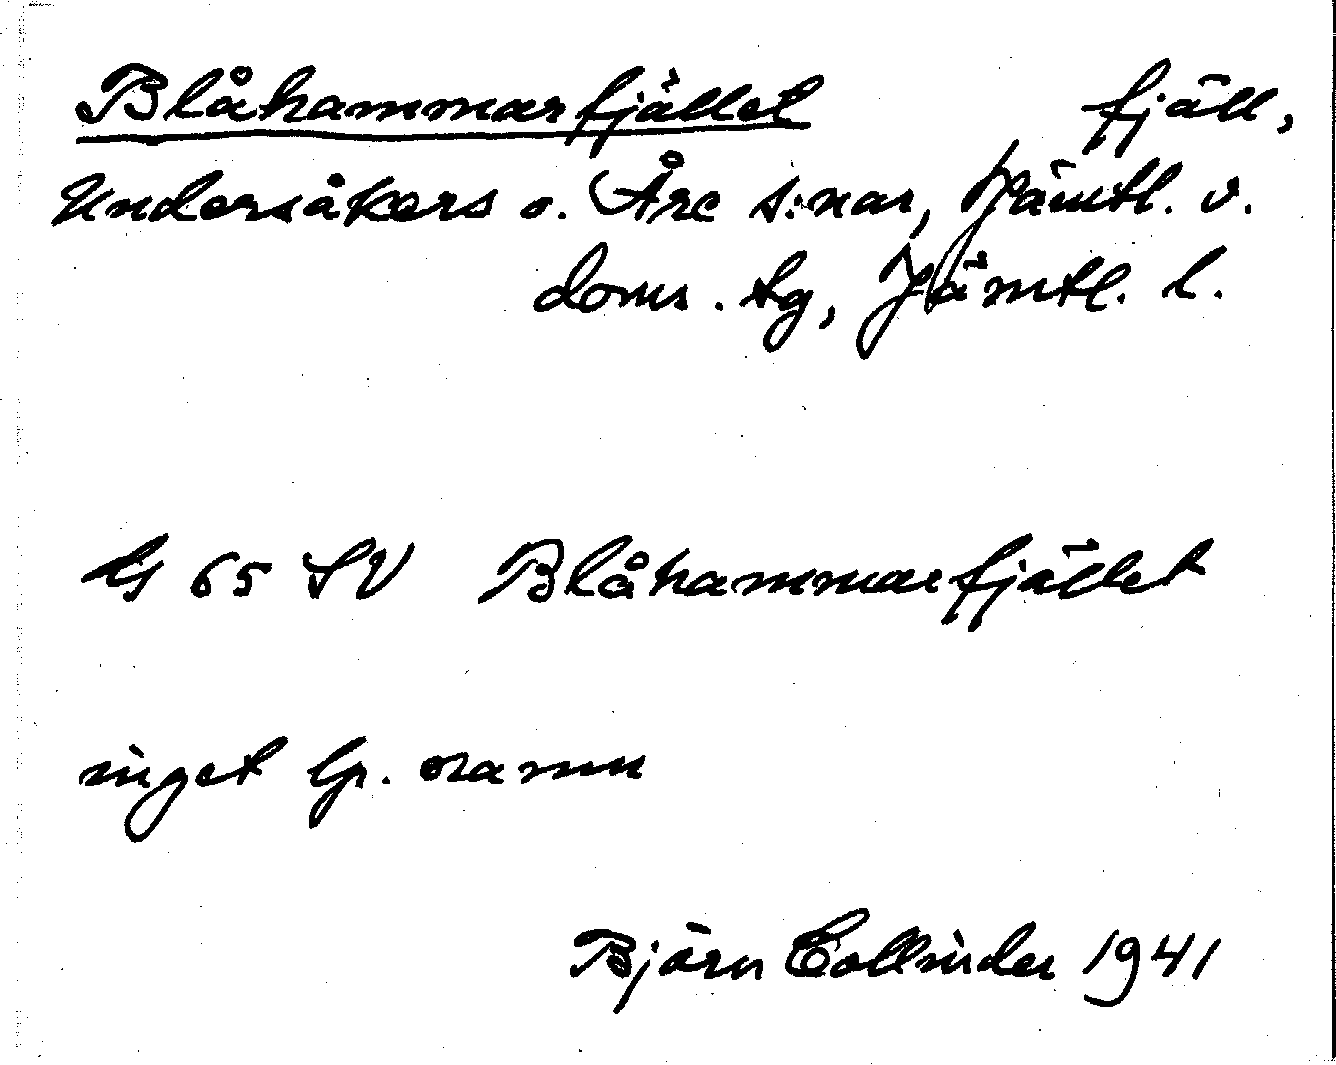 Blåhammarfjället fjäll,
Undersåkers o. Åre s:nar, Jämtl. v.
doms. tg, Jämtl. l.
G 65 SV Blåhammarfjället
inget lp. namn
Björn Collinder 1941